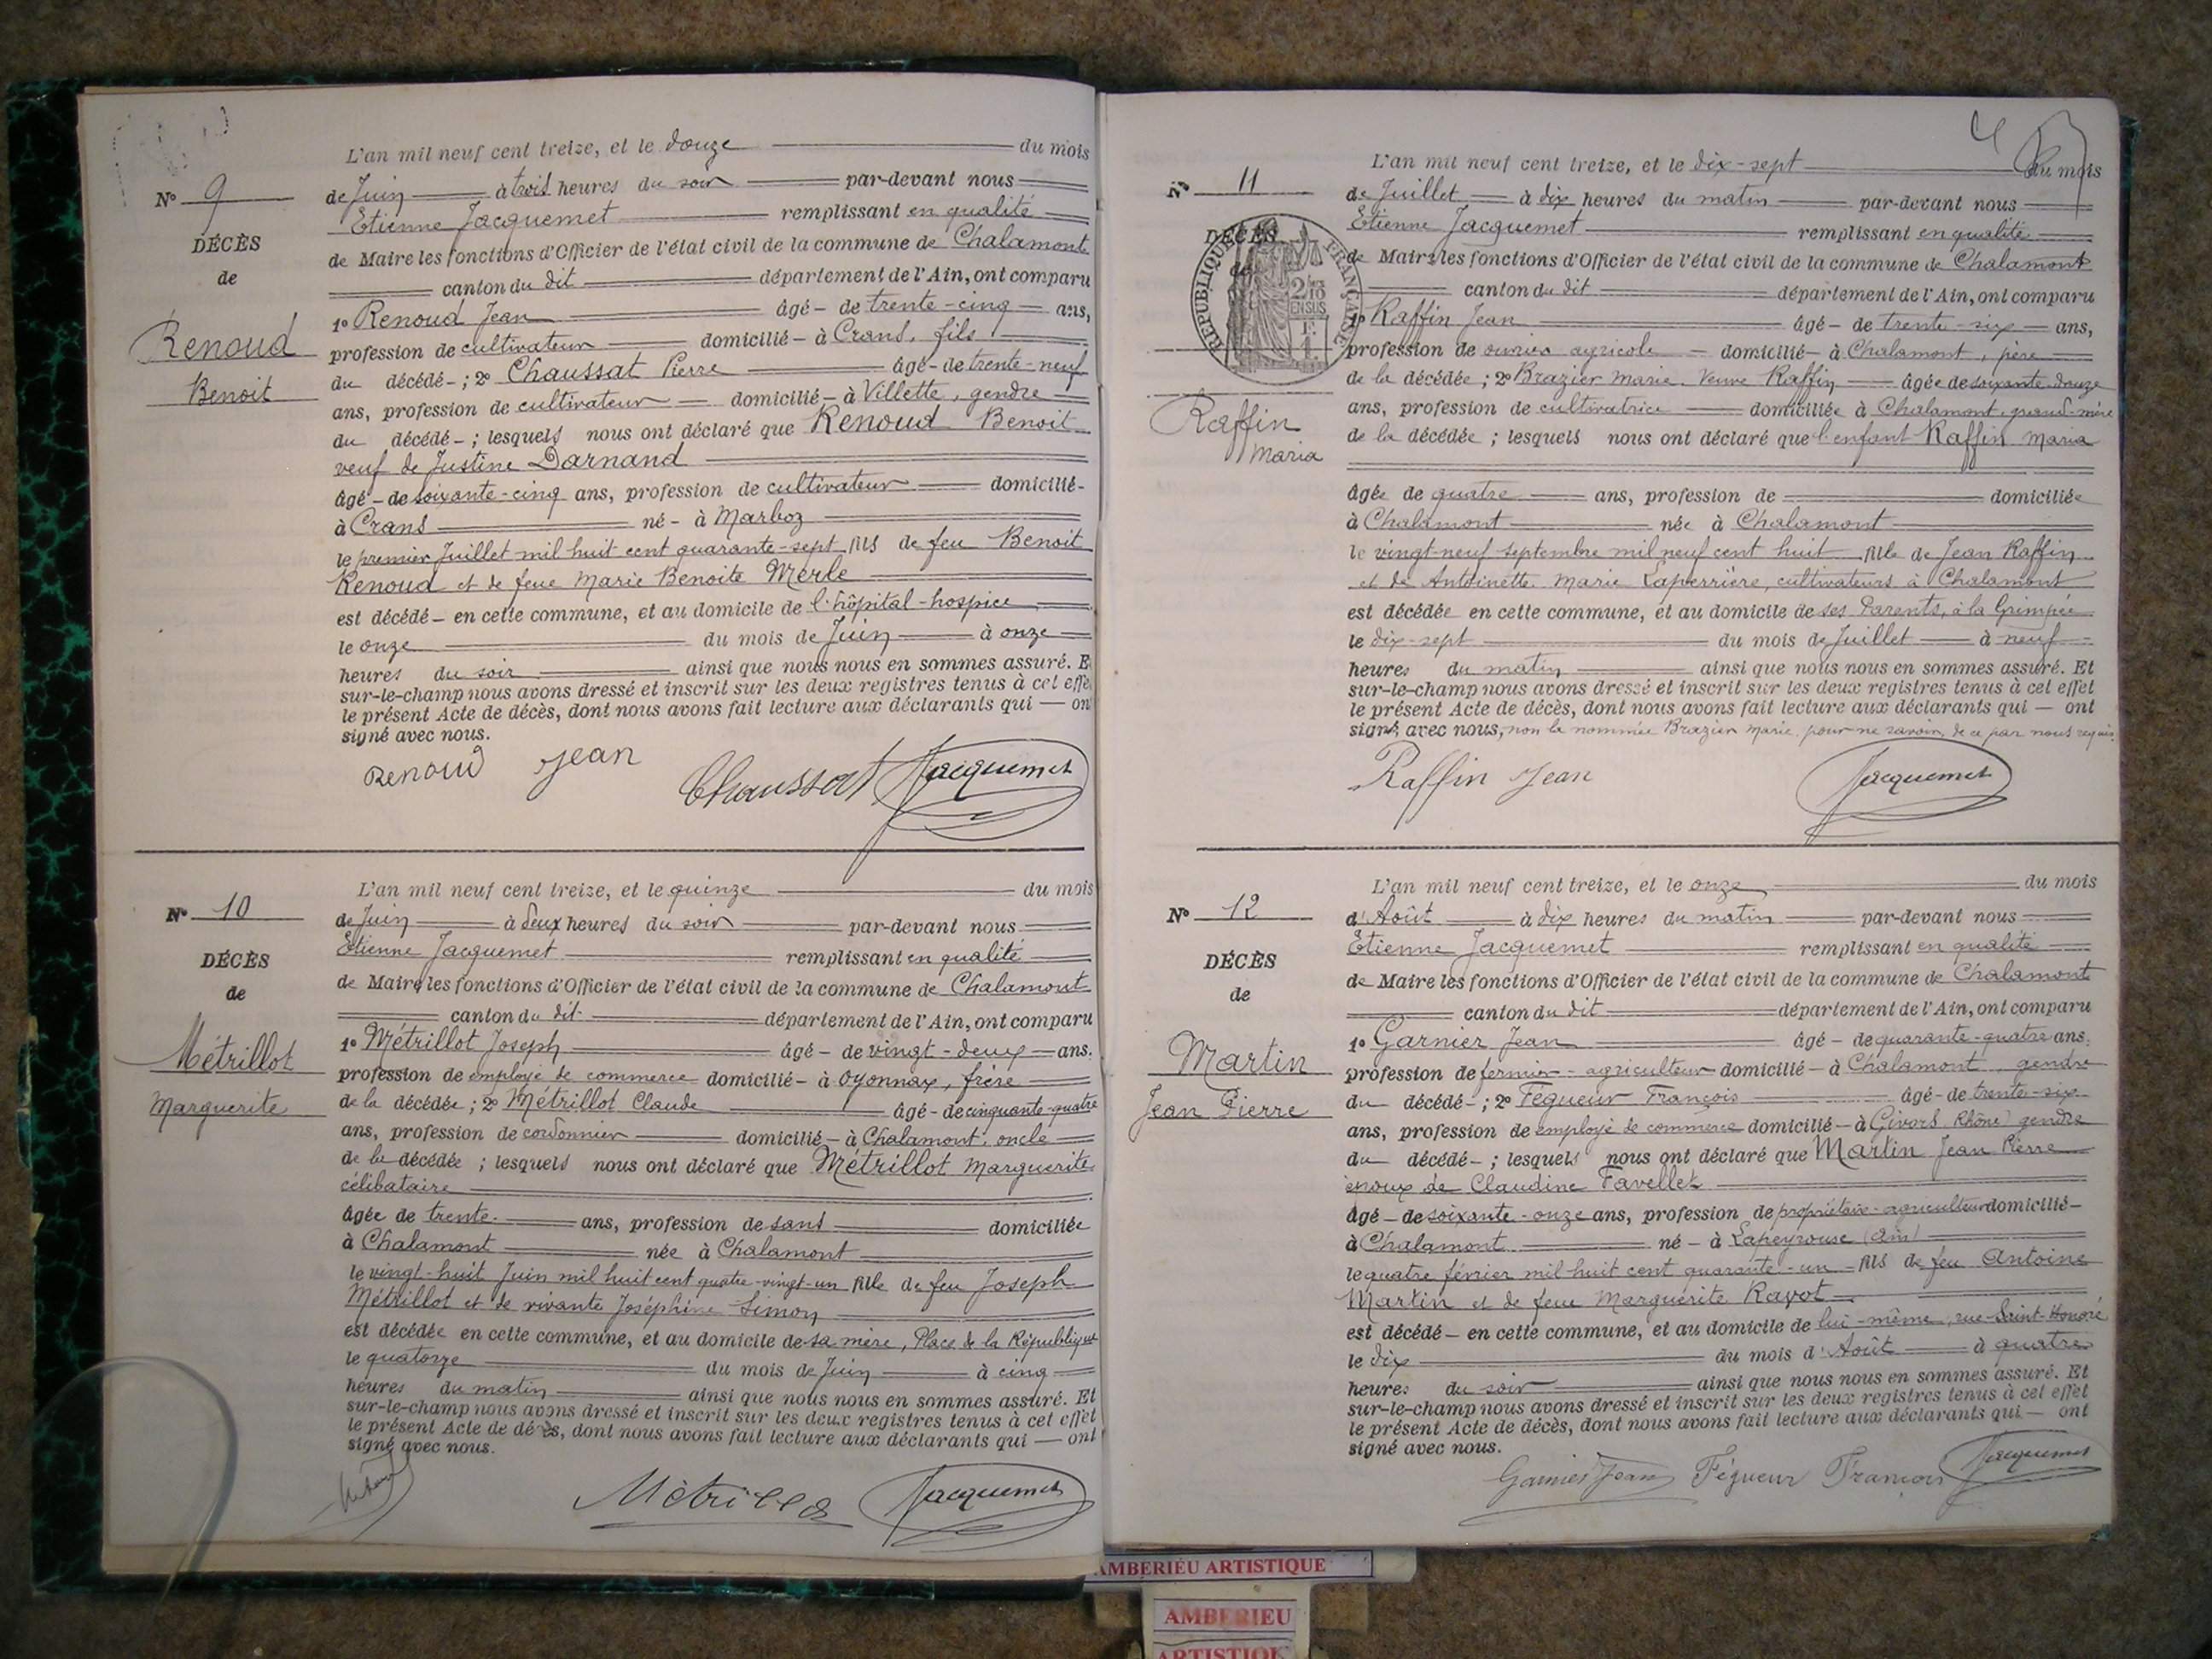 L'an mil neuf cent treize, et le douze du mois
N° 9
de Juin à trois heures du soir par-devant nous
Etienne Jacquemet remplissant en qualité
DÉCÈS
de Maire les fonctions d'Officier de l'état civil de la commune de Chalamont
de
canton du dit département de l'Ain, ont comparu
1° Renoud Jean âgé - de trente-cinq ans,
Renoud
profession de cultivateur domicilié - à Crans, fils
du décédé - ; 2° Chaussat Pierre âgé - de trente-neuf
Benoit
ans, profession de cultivateur domicilié - à Villette, gendre
du décédé - ; lesquels nous ont déclaré que Renoud Benoit
veuf de Justine Darnand
âgé - de soixante-cinq ans, profession de cultivateur domicilié -
à Crans né - à Marboz
le premier Juillet mil huit cent quarante-sept fils de feu Benoit
Renoud et de feue Marie Benoite Merle
est décédé - en cette commune, et au domicile de l'hôpital-hospice
le onze du mois de Juin à onze
heures du soir ainsi que nous nous en sommes assuré. E
sur-le-champ nous avons dressé et inscrit sur les deux registres tenus à cet effe
le présent Acte de décès, dont nous avons fait lecture aux déclarants qui — on
signé avec nous.
Renoud Jean Chaussat Jacquemet
L'an mil neuf cent treize, et le quinze du mois
N° 10
de Juin à deux heures du soir par-devant nous
Etienne Jacquemet remplissant en qualité
DÉCÈS
de Maire les fonctions d'Officier de l'état civil de la commune de Chalamont
de
canton du dit département de l'Ain, ont comparu
1° Métrillot Joseph âgé - de vingt-deux ans.
Métrillot
profession de employé de commerce domicilié - à Oyonnax, frère
de la décédée ; 2° Métrillot Claude âgé - de cinquante-quatre
Marguerite
ans, profession de cordonnier domicilié - à Chalamont, oncle
de la décédée ; lesquels nous ont déclaré que Métrillot Marguerite
célibataire
âgée de trente ans, profession de sans domiciliée
à Chalamont née à Chalamont
le vingt-huit Juin mil huit cent quatre-vingt-un fille de feu Joseph
Métrillot et de vivante Joséphine Simon
est décédée en cette commune, et au domicile de sa mère, Place de la République
le quatorze du mois de Juin à cinq
heures du matin ainsi que nous nous en sommes assuré. Et
sur-le-champ nous avons dressé et inscrit sur les deux registres tenus à cet effet
le présent Acte de décès, dont nous avons fait lecture aux déclarants qui — ont
signé avec nous.
Jacquemet
4
L'an mil neuf cent treize, et le dix-sept du mois
N° 11
de Juillet à dix heures du matin par-devant nous
Etienne Jacquemet remplissant en qualité
DÉCÈS
de Maire les fonctions d'Officier de l'état civil de la commune de Chalamont
de
RÉPUBLIQUE FRANÇAISE
2/10 EN SUS
canton du dit département de l'Ain, ont comparu
1° Raffin Jean âgé - de trente-six ans,
profession de ouvrier agricole domicilié - à Chalamont, père
de la décédée ; 2° Brazier Marie, Veuve Raffin âgée de soixante-douze
Raffin
ans, profession de cultivatrice domiciliée à Chalamont, grand-mère
de la décédée ; lesquels nous ont déclaré que l'enfant Raffin Maria
Maria
âgée de quatre ans, profession de domiciliée
à Chalamont née à Chalamont
le vingt-neuf septembre mil neuf cent huit fille de Jean Raffin
et de Antoinette Marie Laperrière, cultivateurs à Chalamont
est décédée en cette commune, et au domicile de ses Parents, à la Grimpée
le dix-sept du mois de Juillet à neuf
heures du matin ainsi que nous nous en sommes assuré. Et
sur-le-champ nous avons dressé et inscrit sur les deux registres tenus à cet effet
le présent Acte de décès, dont nous avons fait lecture aux déclarants qui — ont
signé avec nous, non la nommée Brazier Marie, pour ne savoir, de ce par nous requis.
Raffin Jean Jacquemet
L'an mil neuf cent treize, et le onze du mois
N° 12
d'Août à dix heures du matin par-devant nous
Etienne Jacquemet remplissant en qualité
DÉCÈS
de Maire les fonctions d'Officier de l'état civil de la commune de Chalamont
de
canton du dit département de l'Ain, ont comparu
1° Garnier Jean âgé - de quarante-quatre ans,
Martin
profession de fermier-agriculteur domicilié - à Chalamont, gendre
du décédé - ; 2° Fégueur François âgé - de trente-six
Jean Pierre
ans, profession de employé de commerce domicilié - à Givors (Rhône) gendre
du décédé - ; lesquels nous ont déclaré que Martin Jean Pierre
époux de Claudine Favellet
âgé - de soixante-onze ans, profession de propriétaire-agriculteur domicilié -
à Chalamont né - à Lapeyrouse (Ain)
le quatre février mil huit cent quarante-un fils de feu Antoine
Martin et de feue Marguerite Ravot
est décédé - en cette commune, et au domicile de lui-même, rue Saint-Honoré
le dix du mois d'Août à quatre
heures du soir ainsi que nous nous en sommes assuré. Et
sur-le-champ nous avons dressé et inscrit sur les deux registres tenus à cet effet
le présent Acte de décès, dont nous avons fait lecture aux déclarants qui — ont
signé avec nous.
Garnier Jean Fégueur François Jacquemet
AMBERIEU ARTISTIQUE
AMBERIEU
ARTISTIQUE